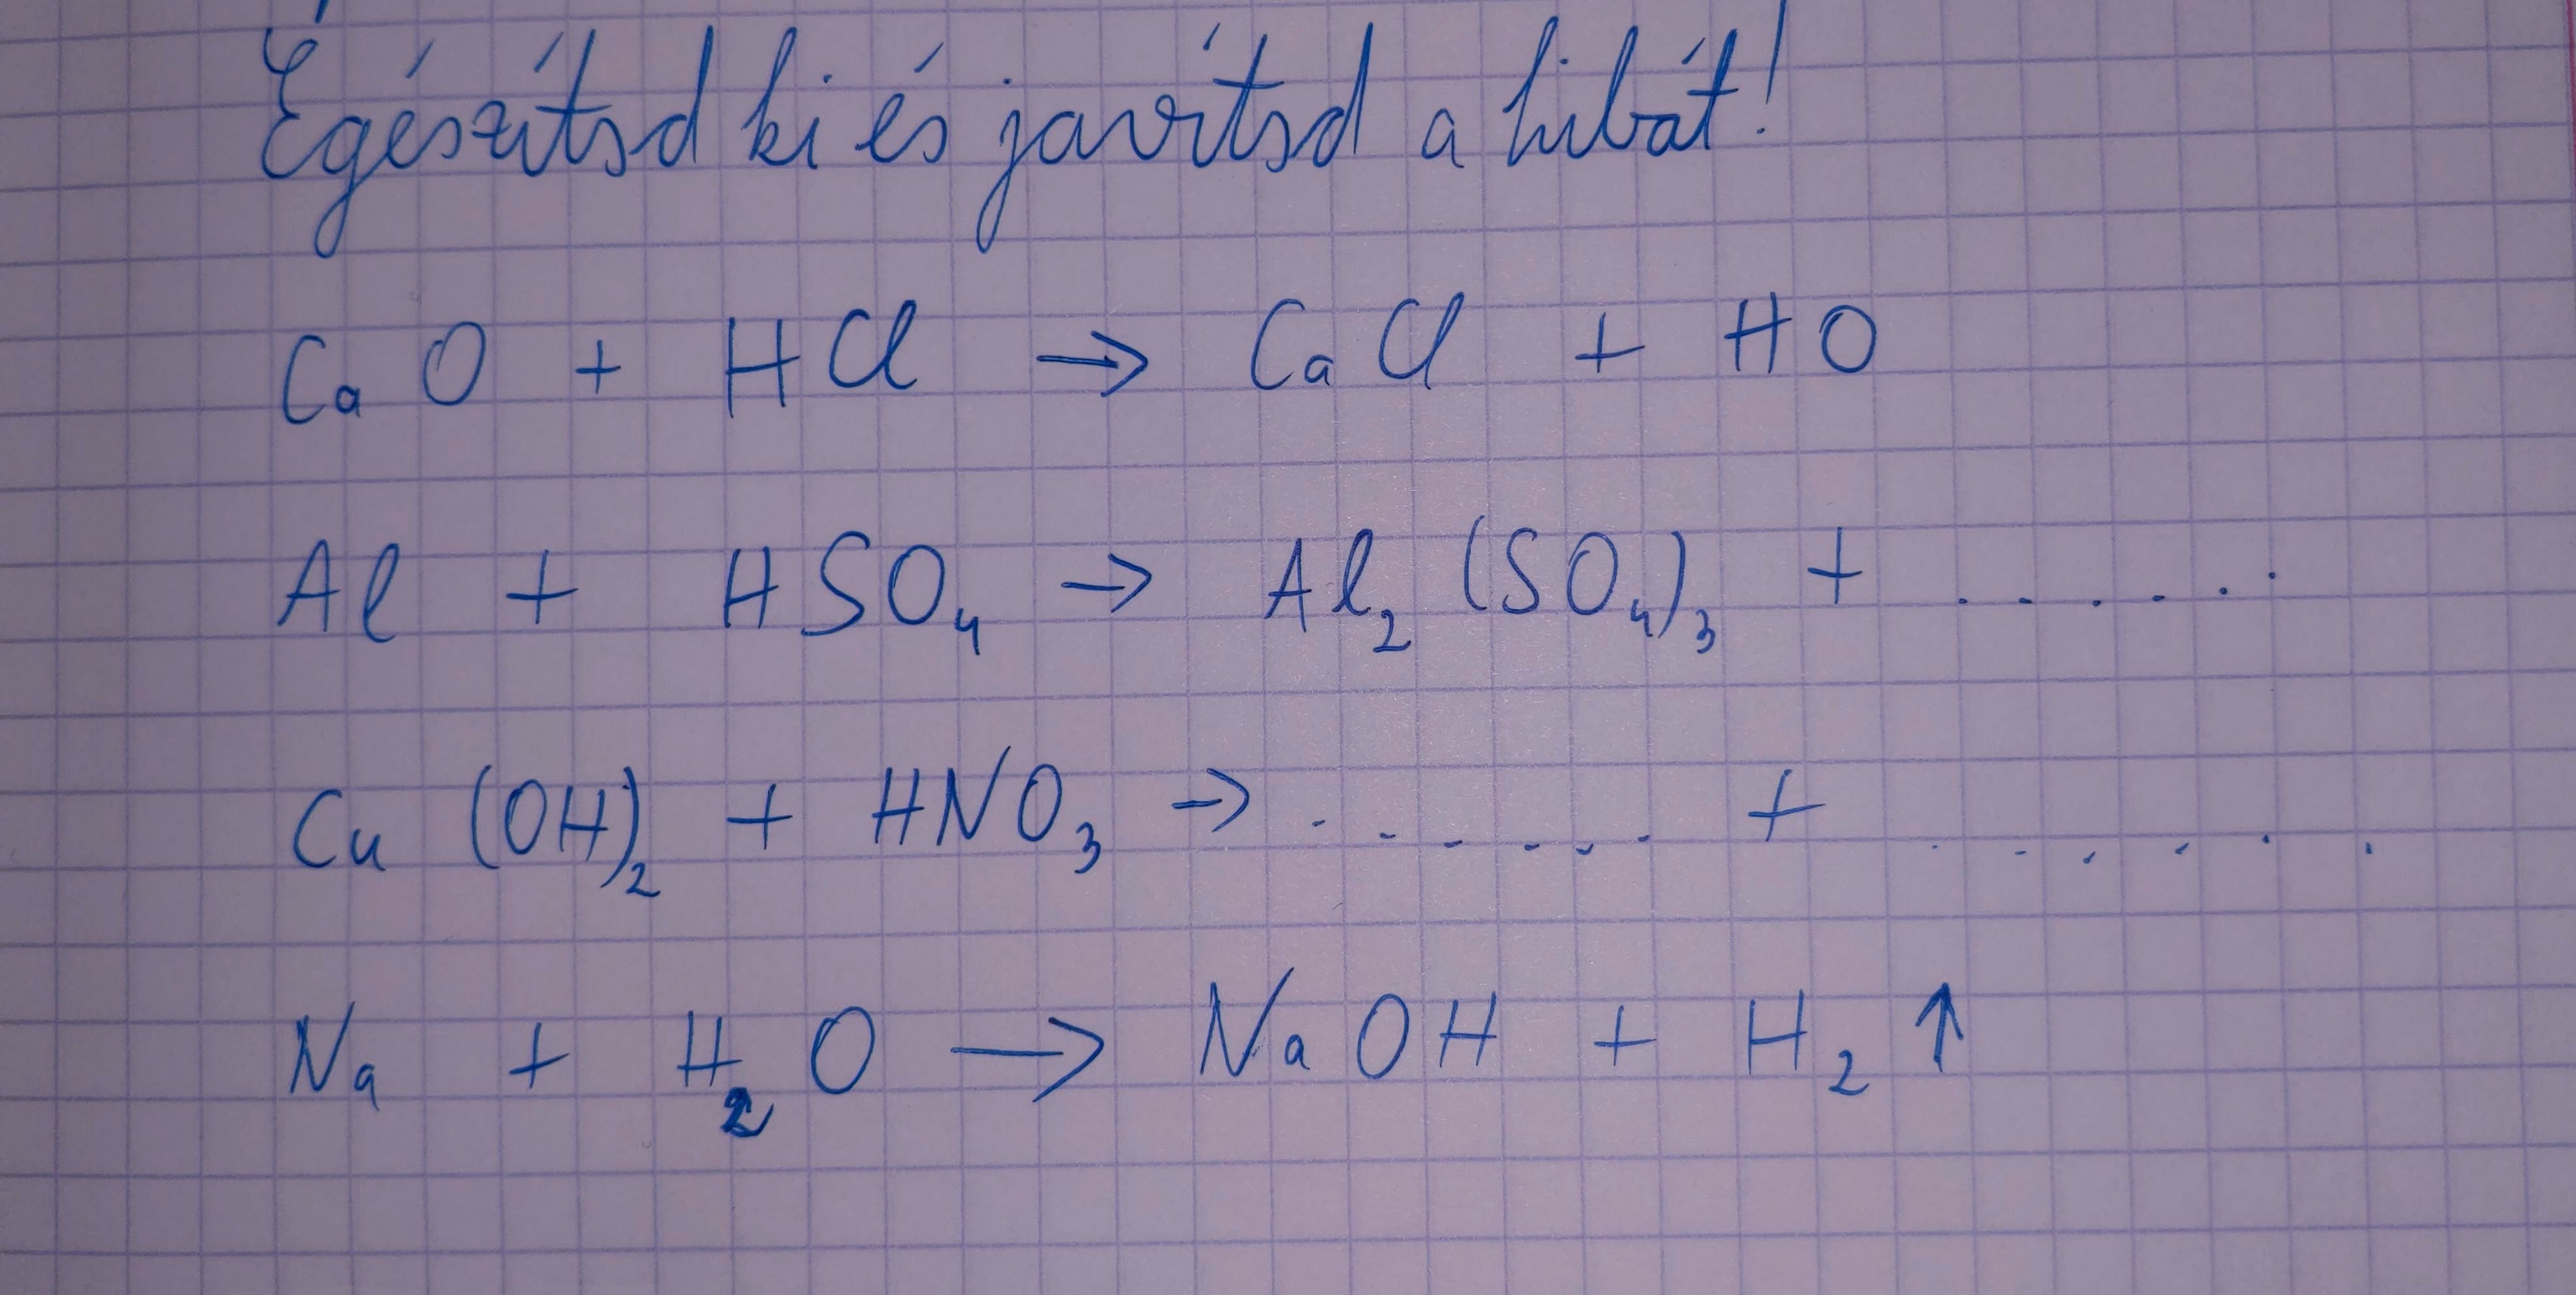 Egészítsd ki és javítsd a hibát!
CaO + HCl → CaCl + HO
Al + HSO₄ → Al₂(SO₄)₃ + ......
Cu(OH)₂ + HNO₃ → ...... + ......
Na + H₂O → NaOH + H₂↑